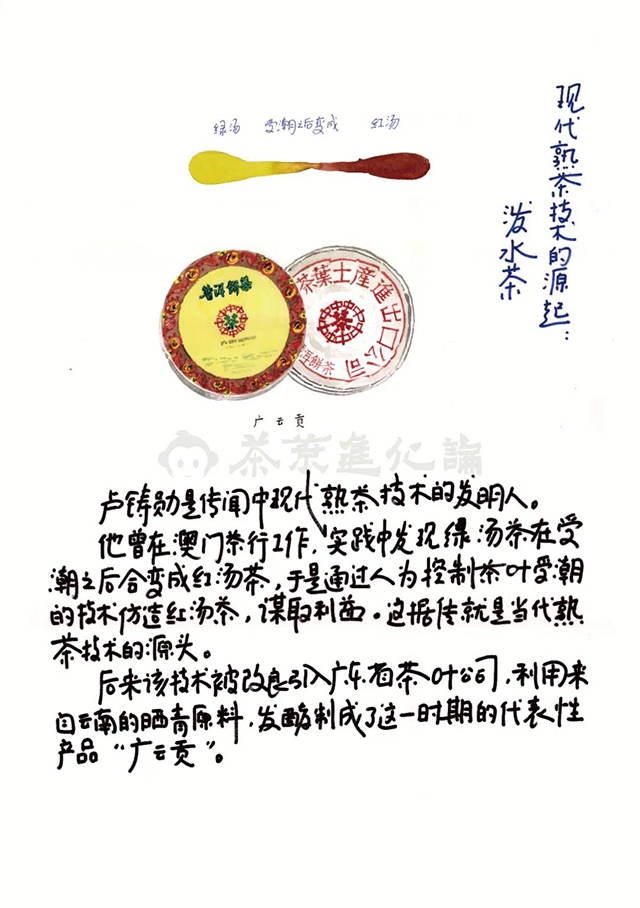 现代熟茶技术的源起：
泼水茶
绿汤 受潮之后变成 红汤
普洱餅茶
茶
茶葉土產進出口公司
茶
洱餅茶
广云贡
茶葉進化論
卢铸勋是传闻中现代熟茶技术的发明人。
他曾在澳门茶行工作，实践中发现绿汤茶在受
潮之后会变成红汤茶，于是通过人为控制茶叶受潮
的技术仿造红汤茶，谋取利益。这据传就是当代熟
茶技术的源头。
后来该技术被改良引入广东省茶叶公司，利用来
自云南的晒青原料，发酵制成了这一时期的代表性
产品“广云贡”。